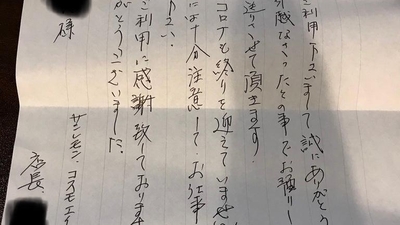 ご利用下さいまして誠にありがとう
引越なさったとの事でお預りし
送りさせて頂きます。
コロナも終りを迎えていませ
には十分注意して、お仕事
下さい。
ご利用に感謝致しております
がとうございました。
サンレモン、コスモエイ
様
店長、